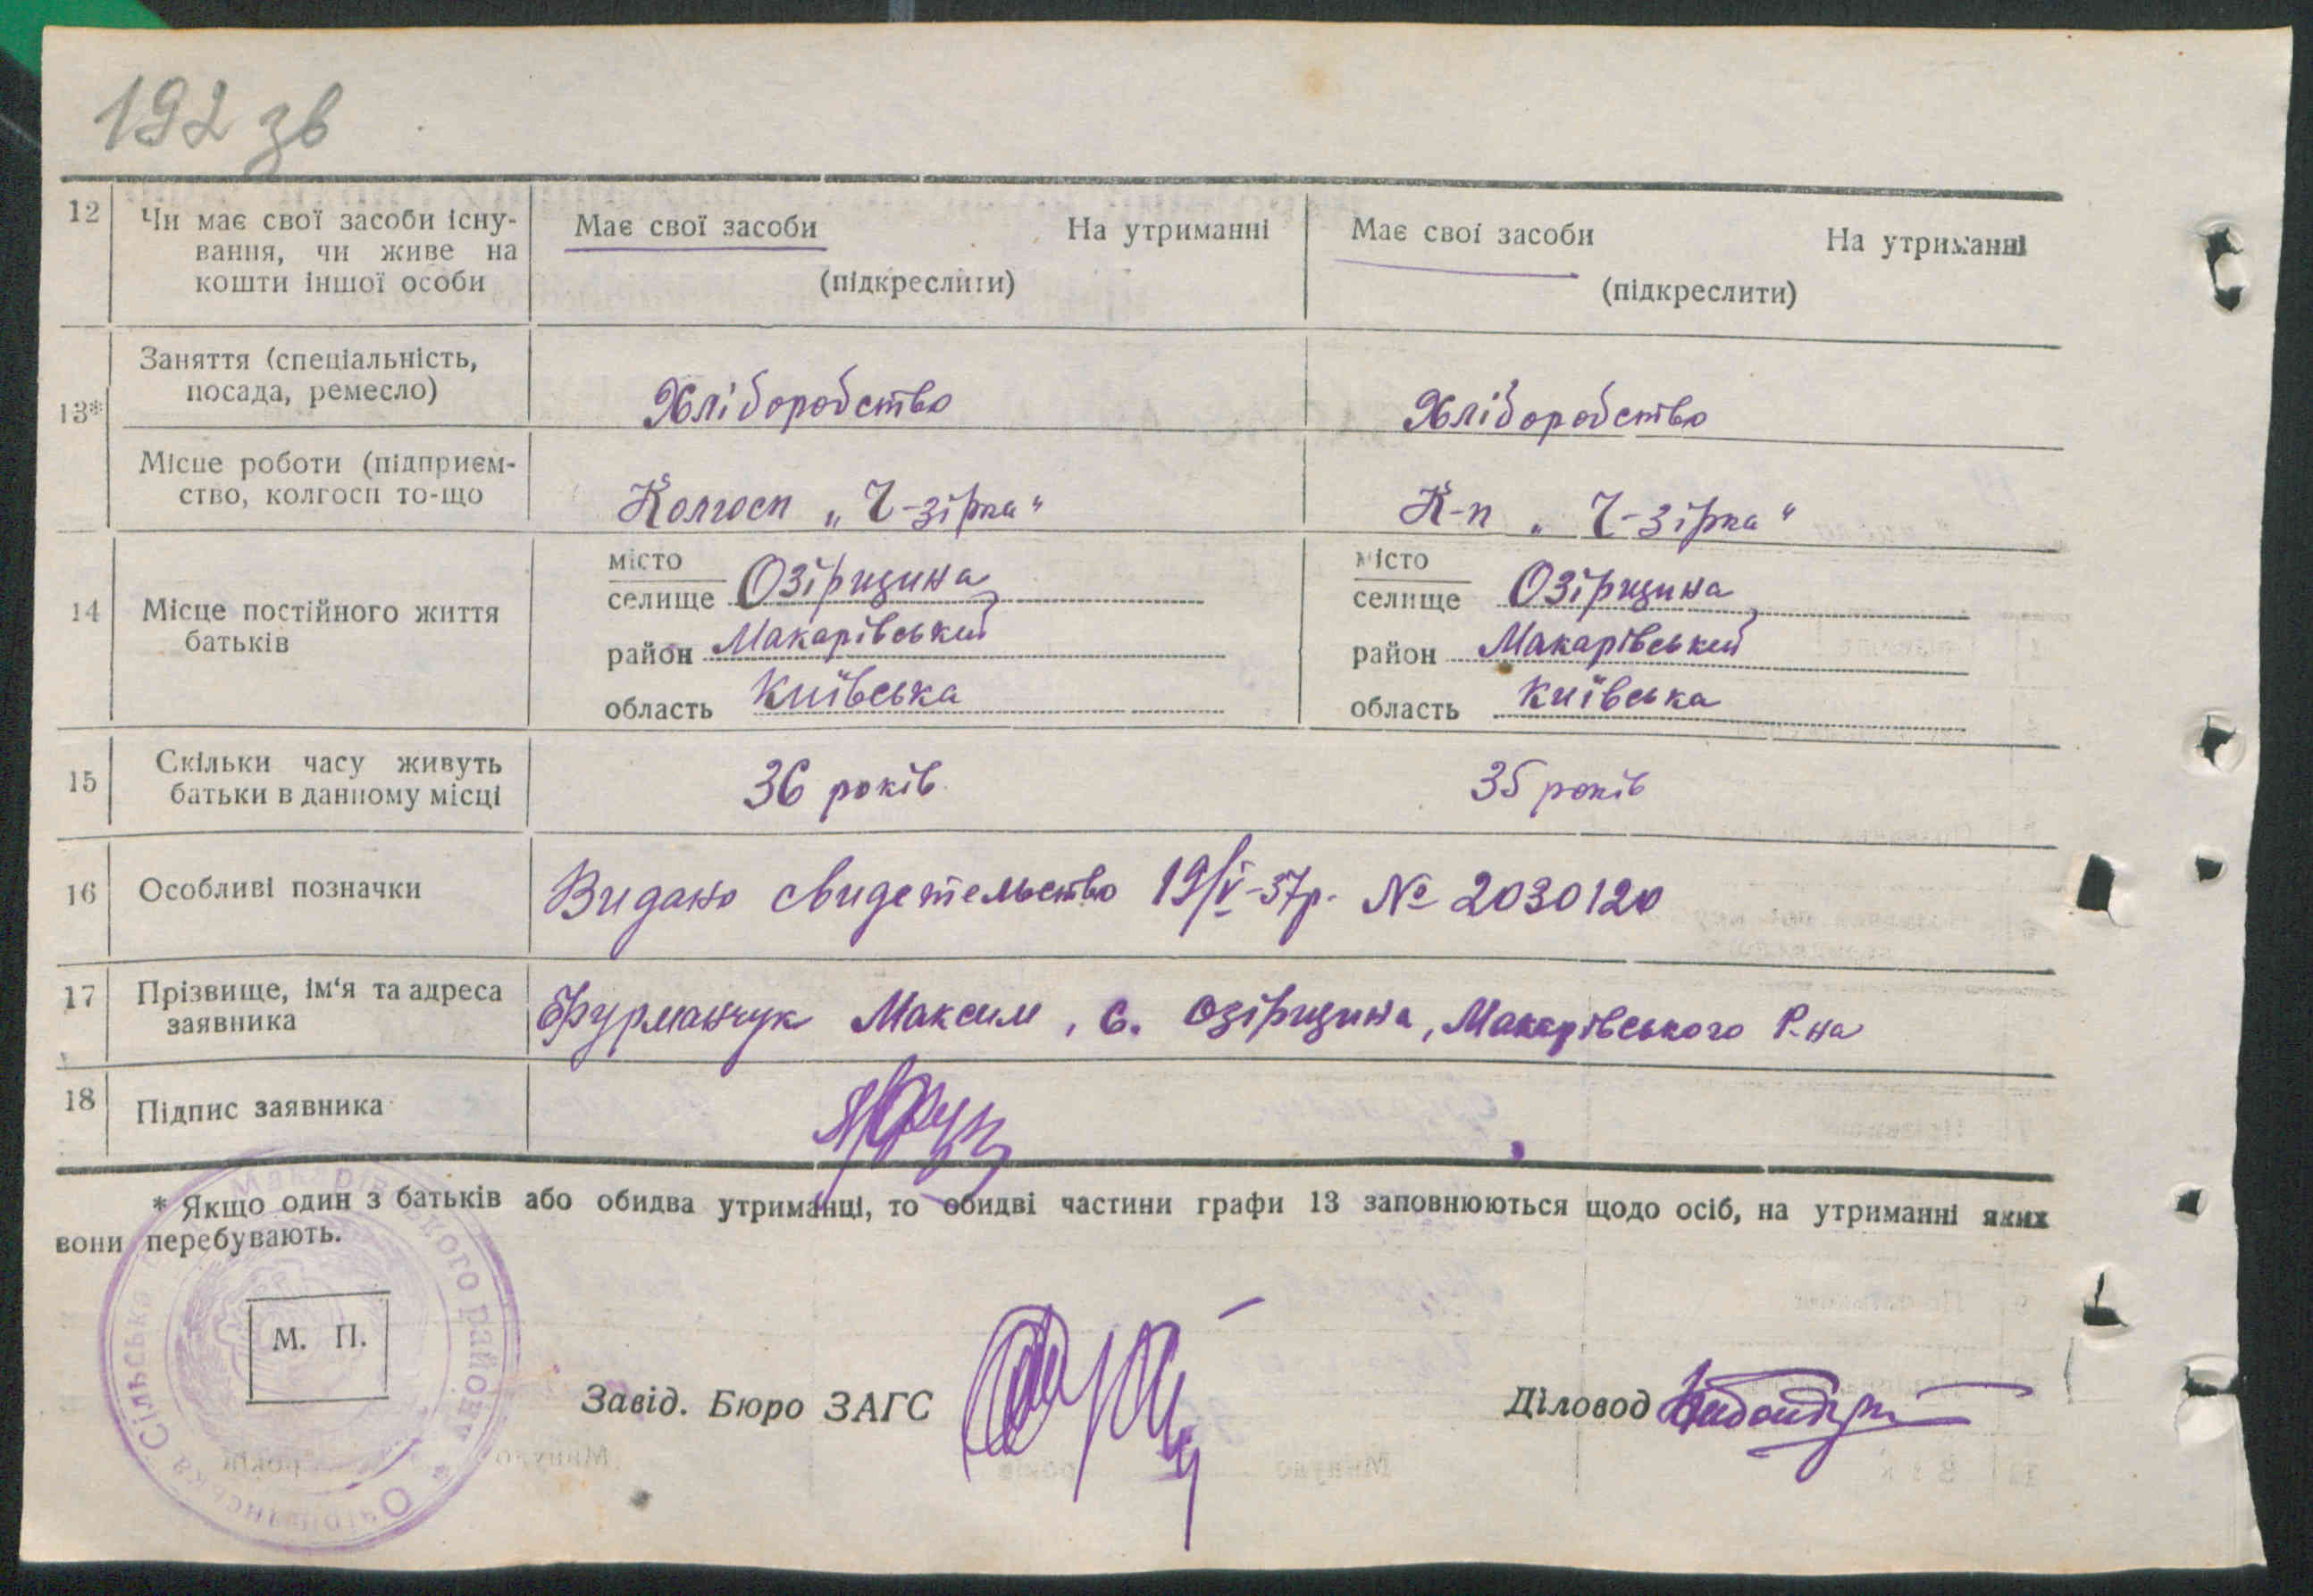 192 зв
12 Чи має свої засоби існу-
вання, чи живе на
кошти іншої особи
Має свої засоби На утриманні
(підкреслити)
Має свої засоби На утриманні
(підкреслити)
13*
Заняття (спеціальність,
посада, ремесло)
Хліборобство
Хліборобство
Місце роботи (підприєм-
ство, колгосп то-що
Колгосп „Ч-зірка“
К-п „Ч-зірка“
14 Місце постійного життя
батьків
місто
селище Озірщина
район Макарівський
область Київська
місто
селище Озірщина
район Макарівський
область Київська
15 Скільки часу живуть
батьки в данному місці
36 років
35 років
16 Особливі позначки
Видано свидетельство 19/V-37р. № 2030120
17 Прізвище, ім‘я та адреса
заявника
Фурманчук Максим, с. Озірщина, Макарівського Р-на
18 Підпис заявника
* Якщо один з батьків або обидва утриманці, то обидві частини графи 13 заповнюються щодо осіб, на утриманні яких
вони перебувають.
Макарівського району * Сільська
М. П.
Завід. Бюро ЗАГС
Діловод